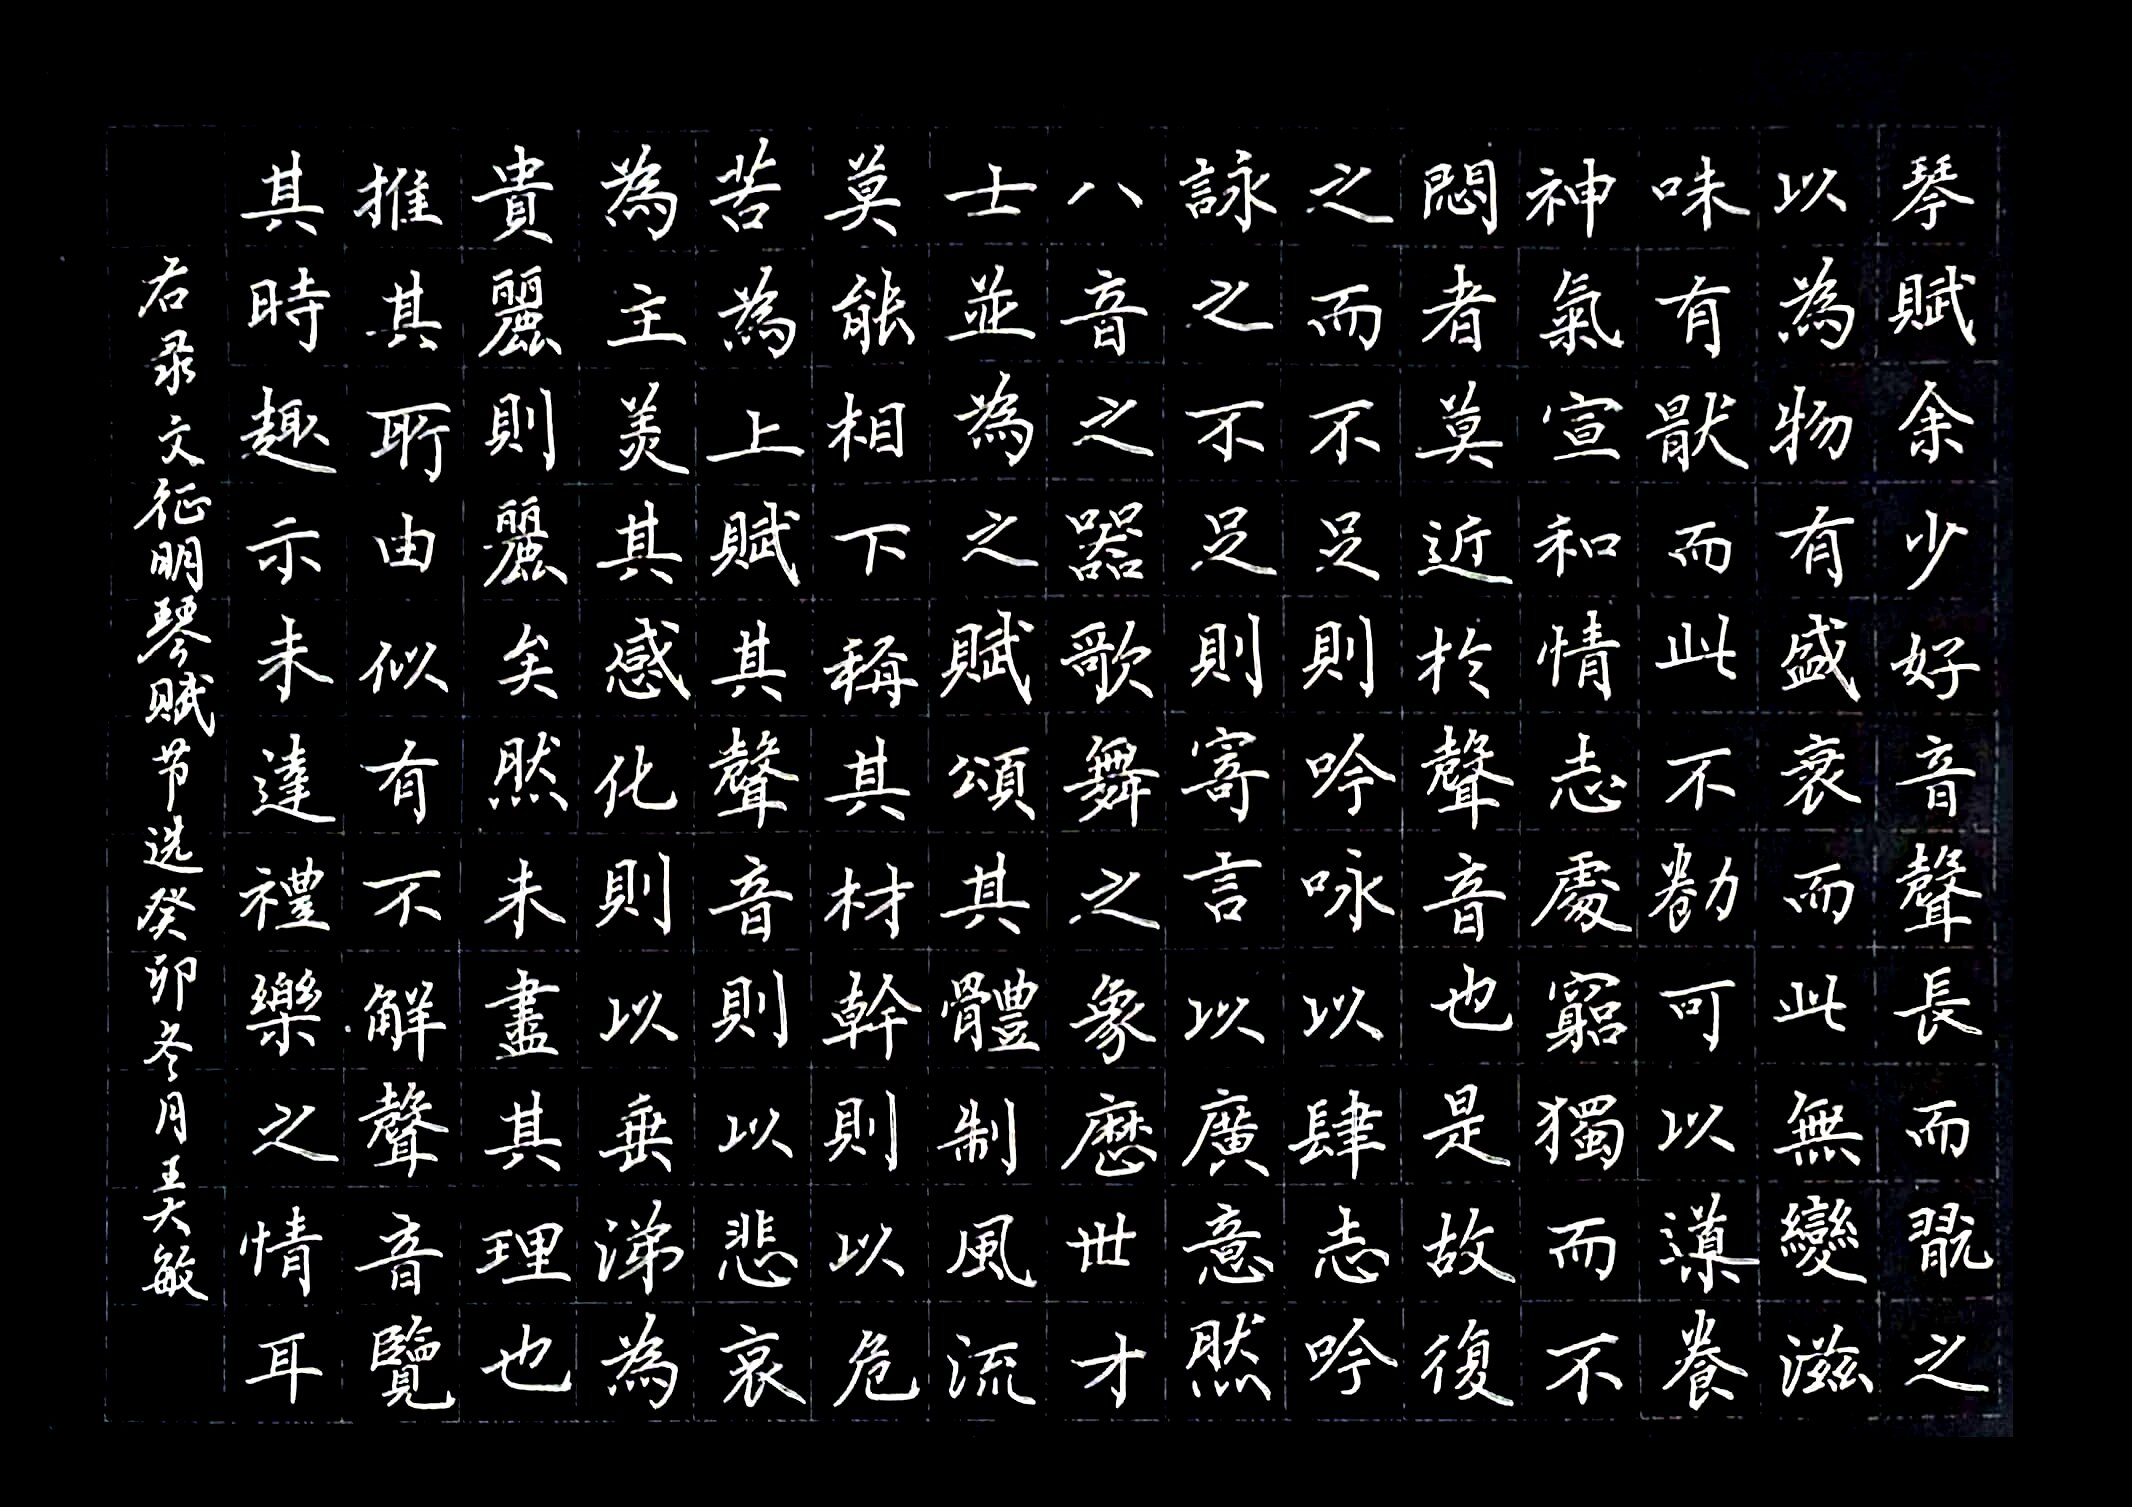 琴賦余少好音聲長而翫之
以為物有盛衰而此無變滋
味有猒而此不勌可以導養
神氣宣和情志處窮獨而不
悶者莫近於聲音也是故復
之而不足則吟咏以肆志吟
詠之不足則寄言以廣意然
八音之器歌舞之象歷世才
士並為之賦頌其體制風流
莫能相下稱其材幹則以危
苦為上賦其聲音則以悲哀
為主羙其感化則以垂涕為
貴麗則麗矣然未盡其理也
推其所由似有不解聲音覽
其時趣示未達禮樂之情耳
右录文征明琴赋节选癸卯冬月王大敏